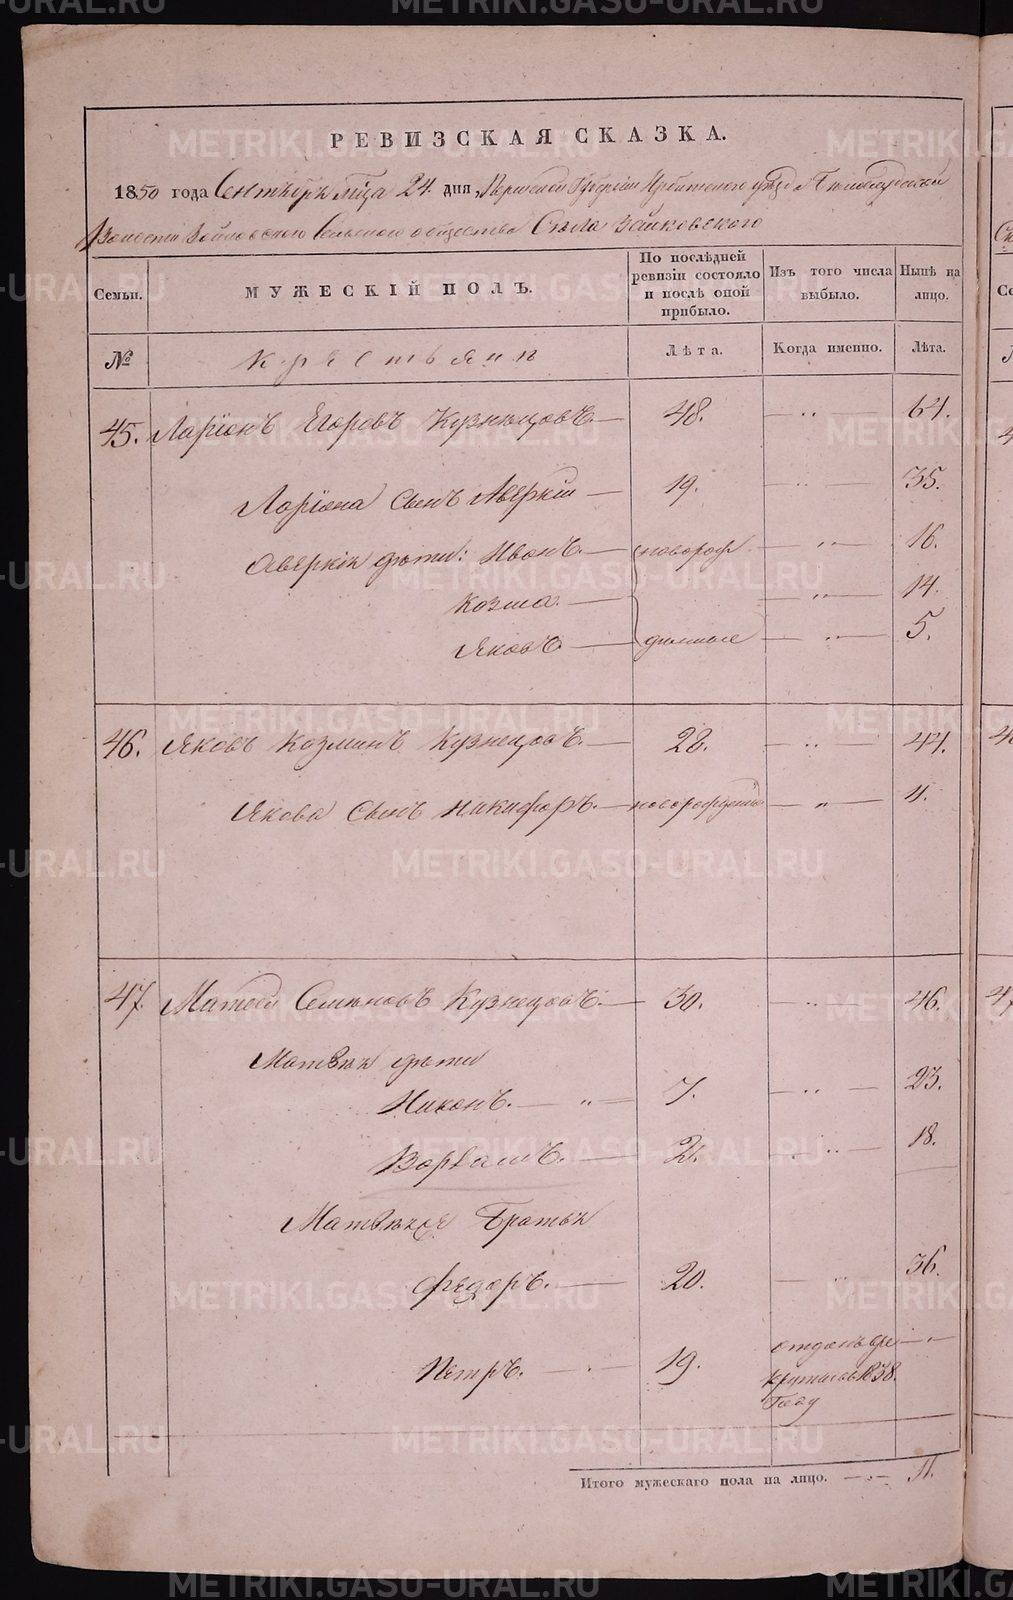 РЕВИЗСКАЯ СКАЗКА.
1850 года Сентября м-ца 24 дня, Пермской Губернии Ирбитского уезда
Волости Зайковского Сельского общества Села Зайковского
Семьи.
МУЖЕСКІЙ ПОЛЪ.
По послѣдней ревизіи состояло и послѣ оной прибыло.
Изъ того числа выбыло.
Нынѣ на лицо.
№
Крестьянъ
Лѣта.
Когда именно.
Лѣта.
45. Ларіонъ Егоровъ Кузнецовъ. — 48. — „ — 64.
Ларіона сынъ Аверкій — 19. — „ — 35.
Аверкія дѣти: Иванъ. — новорож — „ — 16.
Козма. — — „ — 14.
Яковъ — денные — „ — 5.
46. Яковъ Козминъ Кузнецовъ. — 28. — „ — 44.
Якова сынъ Никифоръ. — новорожденъ — „ — 4.
47. Матвей Семеновъ Кузнецовъ. — 30. — „ — 46.
Матвѣя дѣти
Никонъ. — „ — 7. — „ — 23.
2. — „ — 18.
Матвѣя Братья
Федоръ. — 20. — „ — 36.
Петръ. — „ — 19. отданъ въ ре — „
круты въ 1838.
Году
Итого мужескаго пола на лицо. — „ — 11.
METRIKI.GASO-URAL.RU